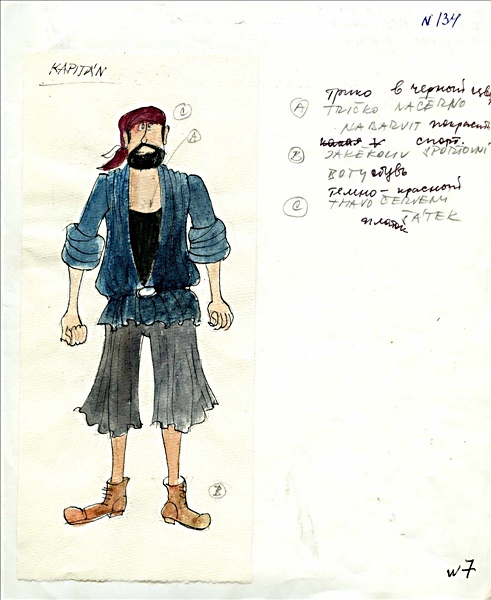 N 134
KAPITÁN
C
A
трико в черный цв
A TRIČKO NAČERNO
NABARVIT покрасит
B JAKÉKOLIV SPORTOVNÍ спорт.
BOTY обувь
темно-красный
C TMAVO ČERVENÝ
ŠÁTEK
платок
B
w7